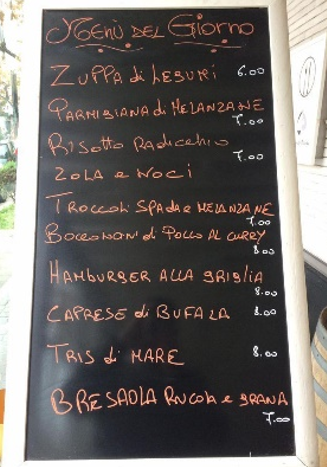 Menù del Giorno
Zuppa di Legumi 6.00
Parmigiana di Melanzane
7.00
Risotto Radicchio
7.00
Zola e Noci
Troccoli Spada e Melanzane
7.00
Bocconcini di Pollo al Curry
8.00
Hamburger alla Griglia
8.00
Caprese di Bufala 8.00
Tris di Mare 8.00
Bresaola Rucola e Grana
7.00